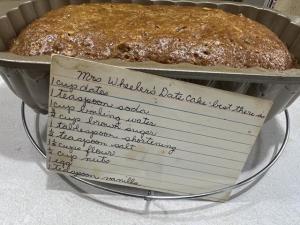 Mrs Wheeler's Date Cake - best there is
1 cup dates
1 teaspoon soda
1 cup boiling water
brown sugar
1 tablespoon shortening
teaspoon salt
cups flour
cup nuts
1 egg
1 teaspoon vanilla